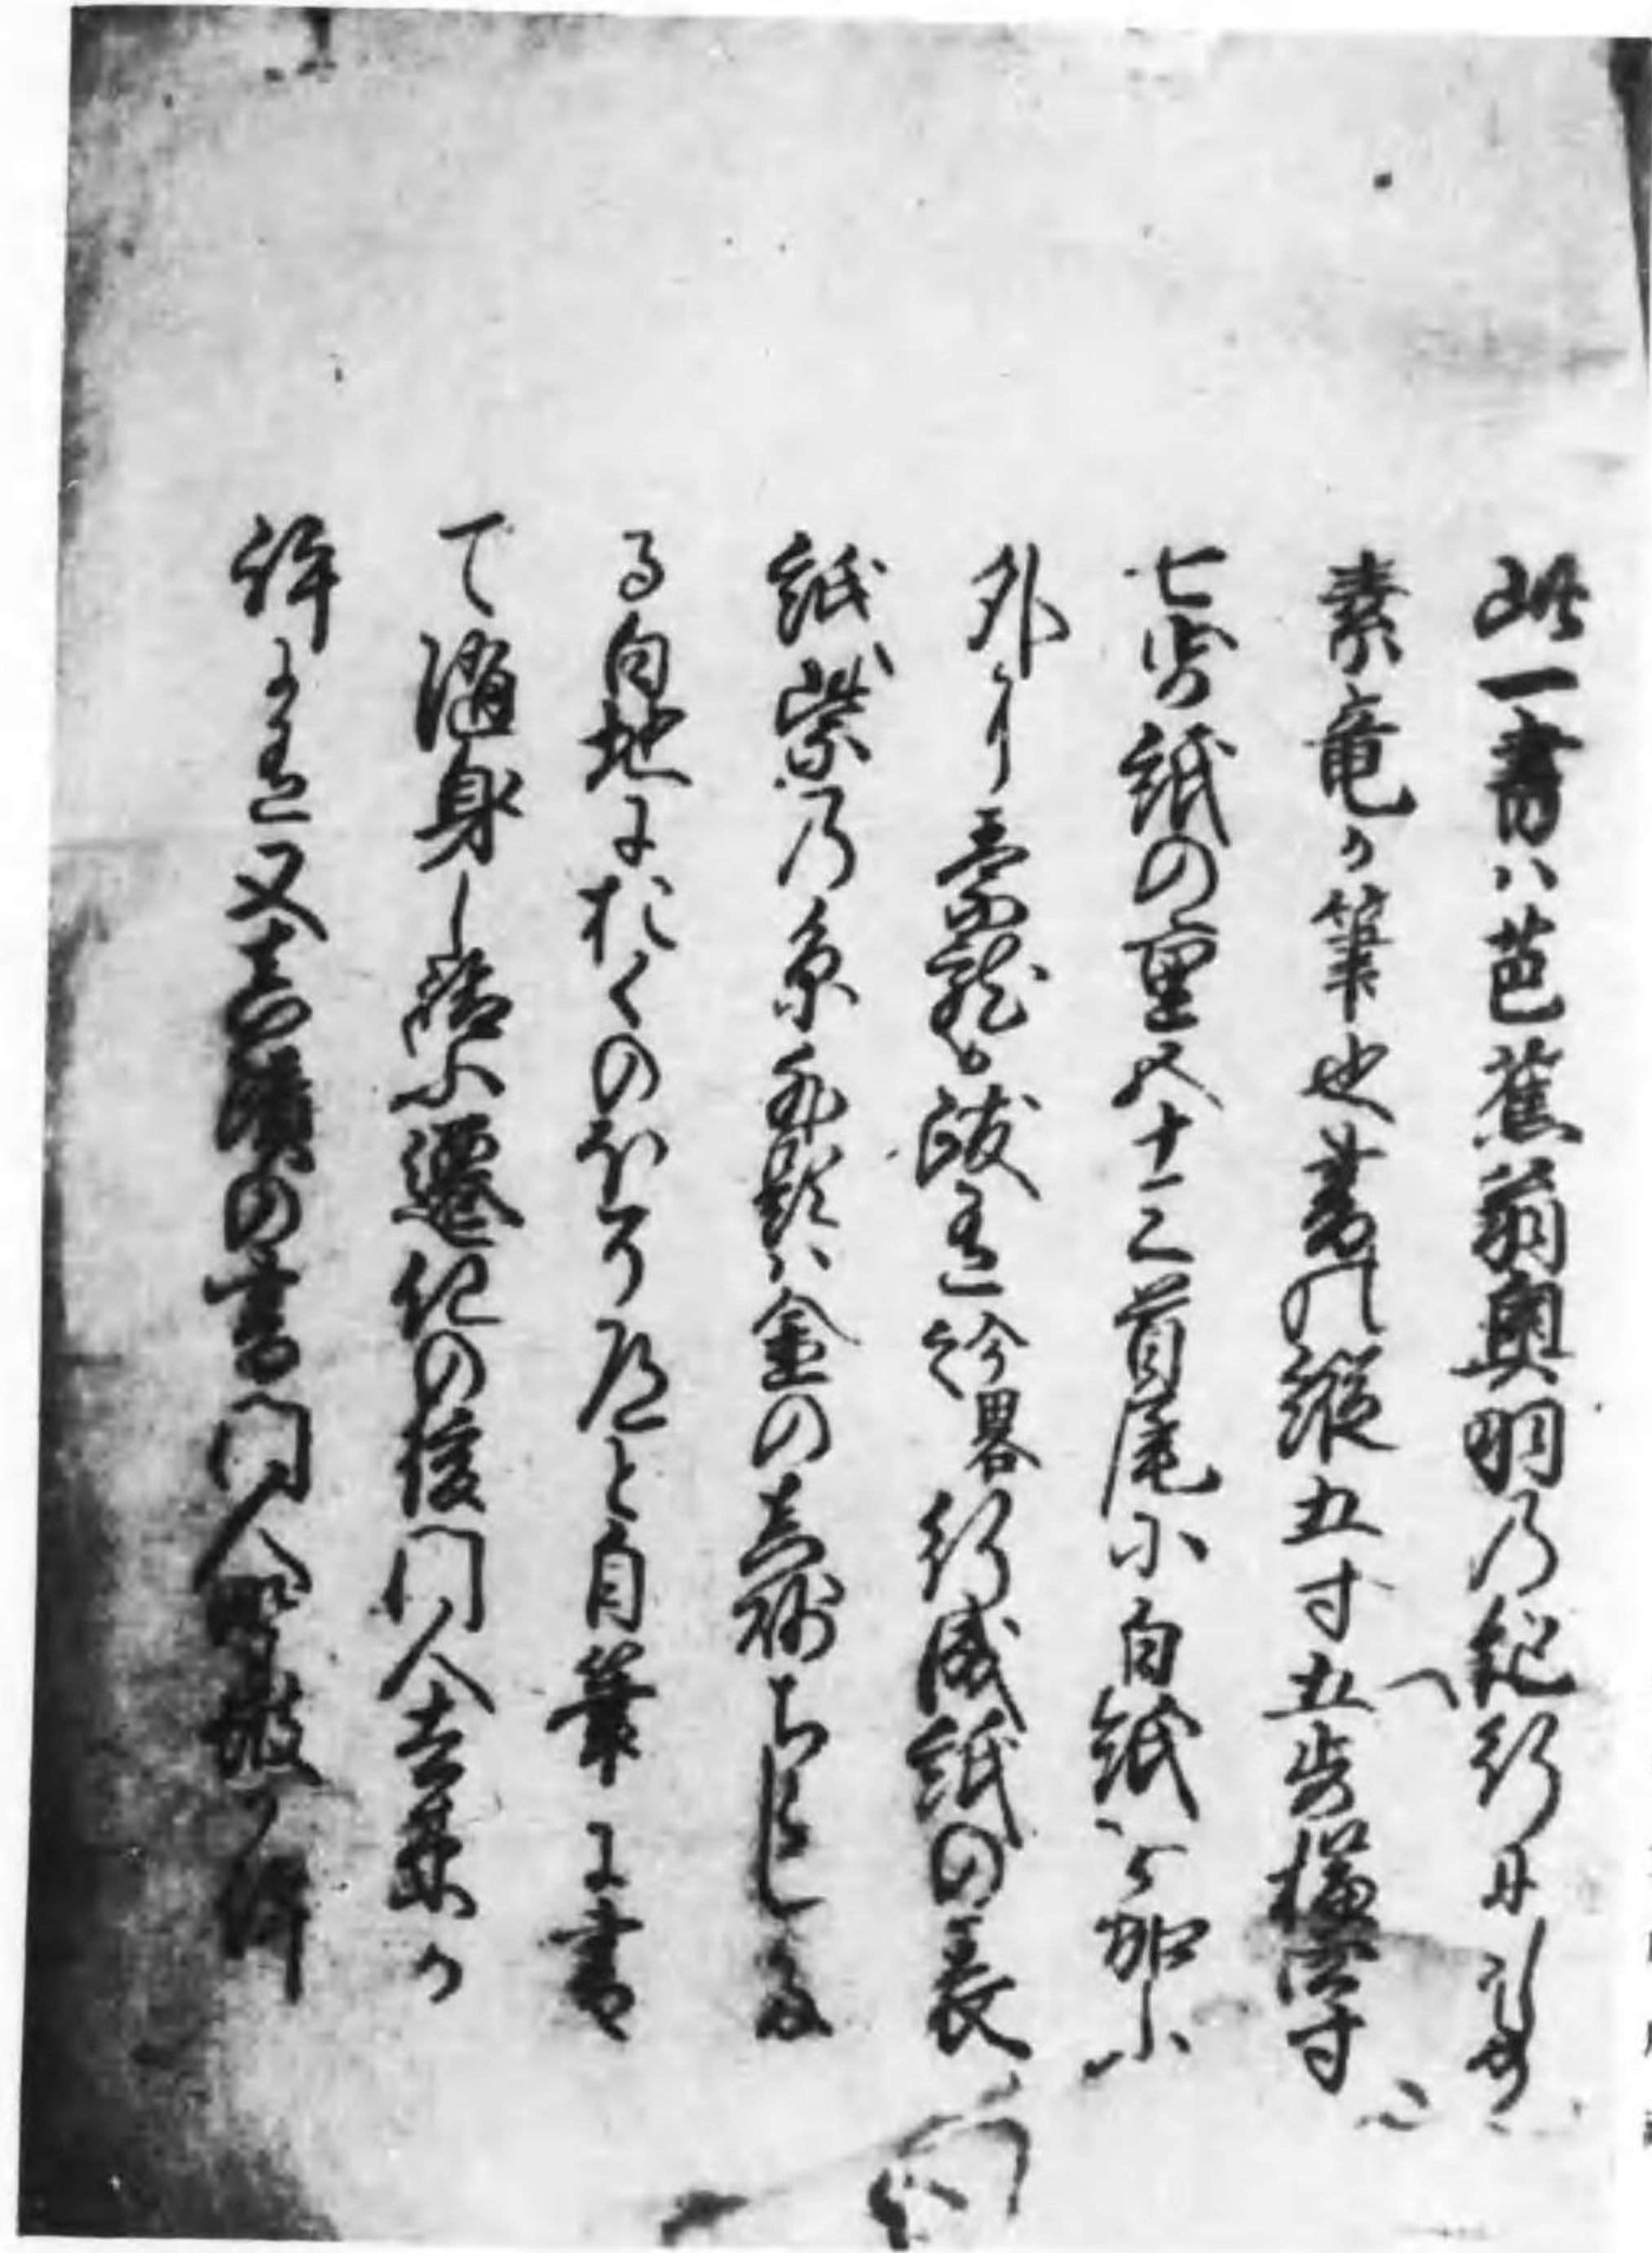 此一書ハ芭蕉翁奥羽乃紀行
素竜か筆也書の縦五寸五歩横四寸
七歩紙の重五十三首尾に白紙を加ふ
外に素龍か跋有今略行成紙の表
紙紫乃糸外題ハ金の真砂ちらしたる
る白地におくのほそ道と自筆に書
て随身し給ふ遷化の後門人去来か
許に有又真蹟の書門人野坡か許